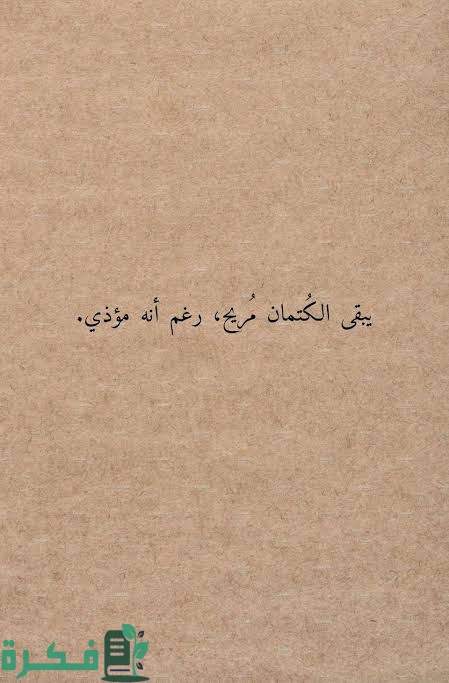 يبقى الكُتمان مُريح، رغم أنه مؤذي.
فكرة